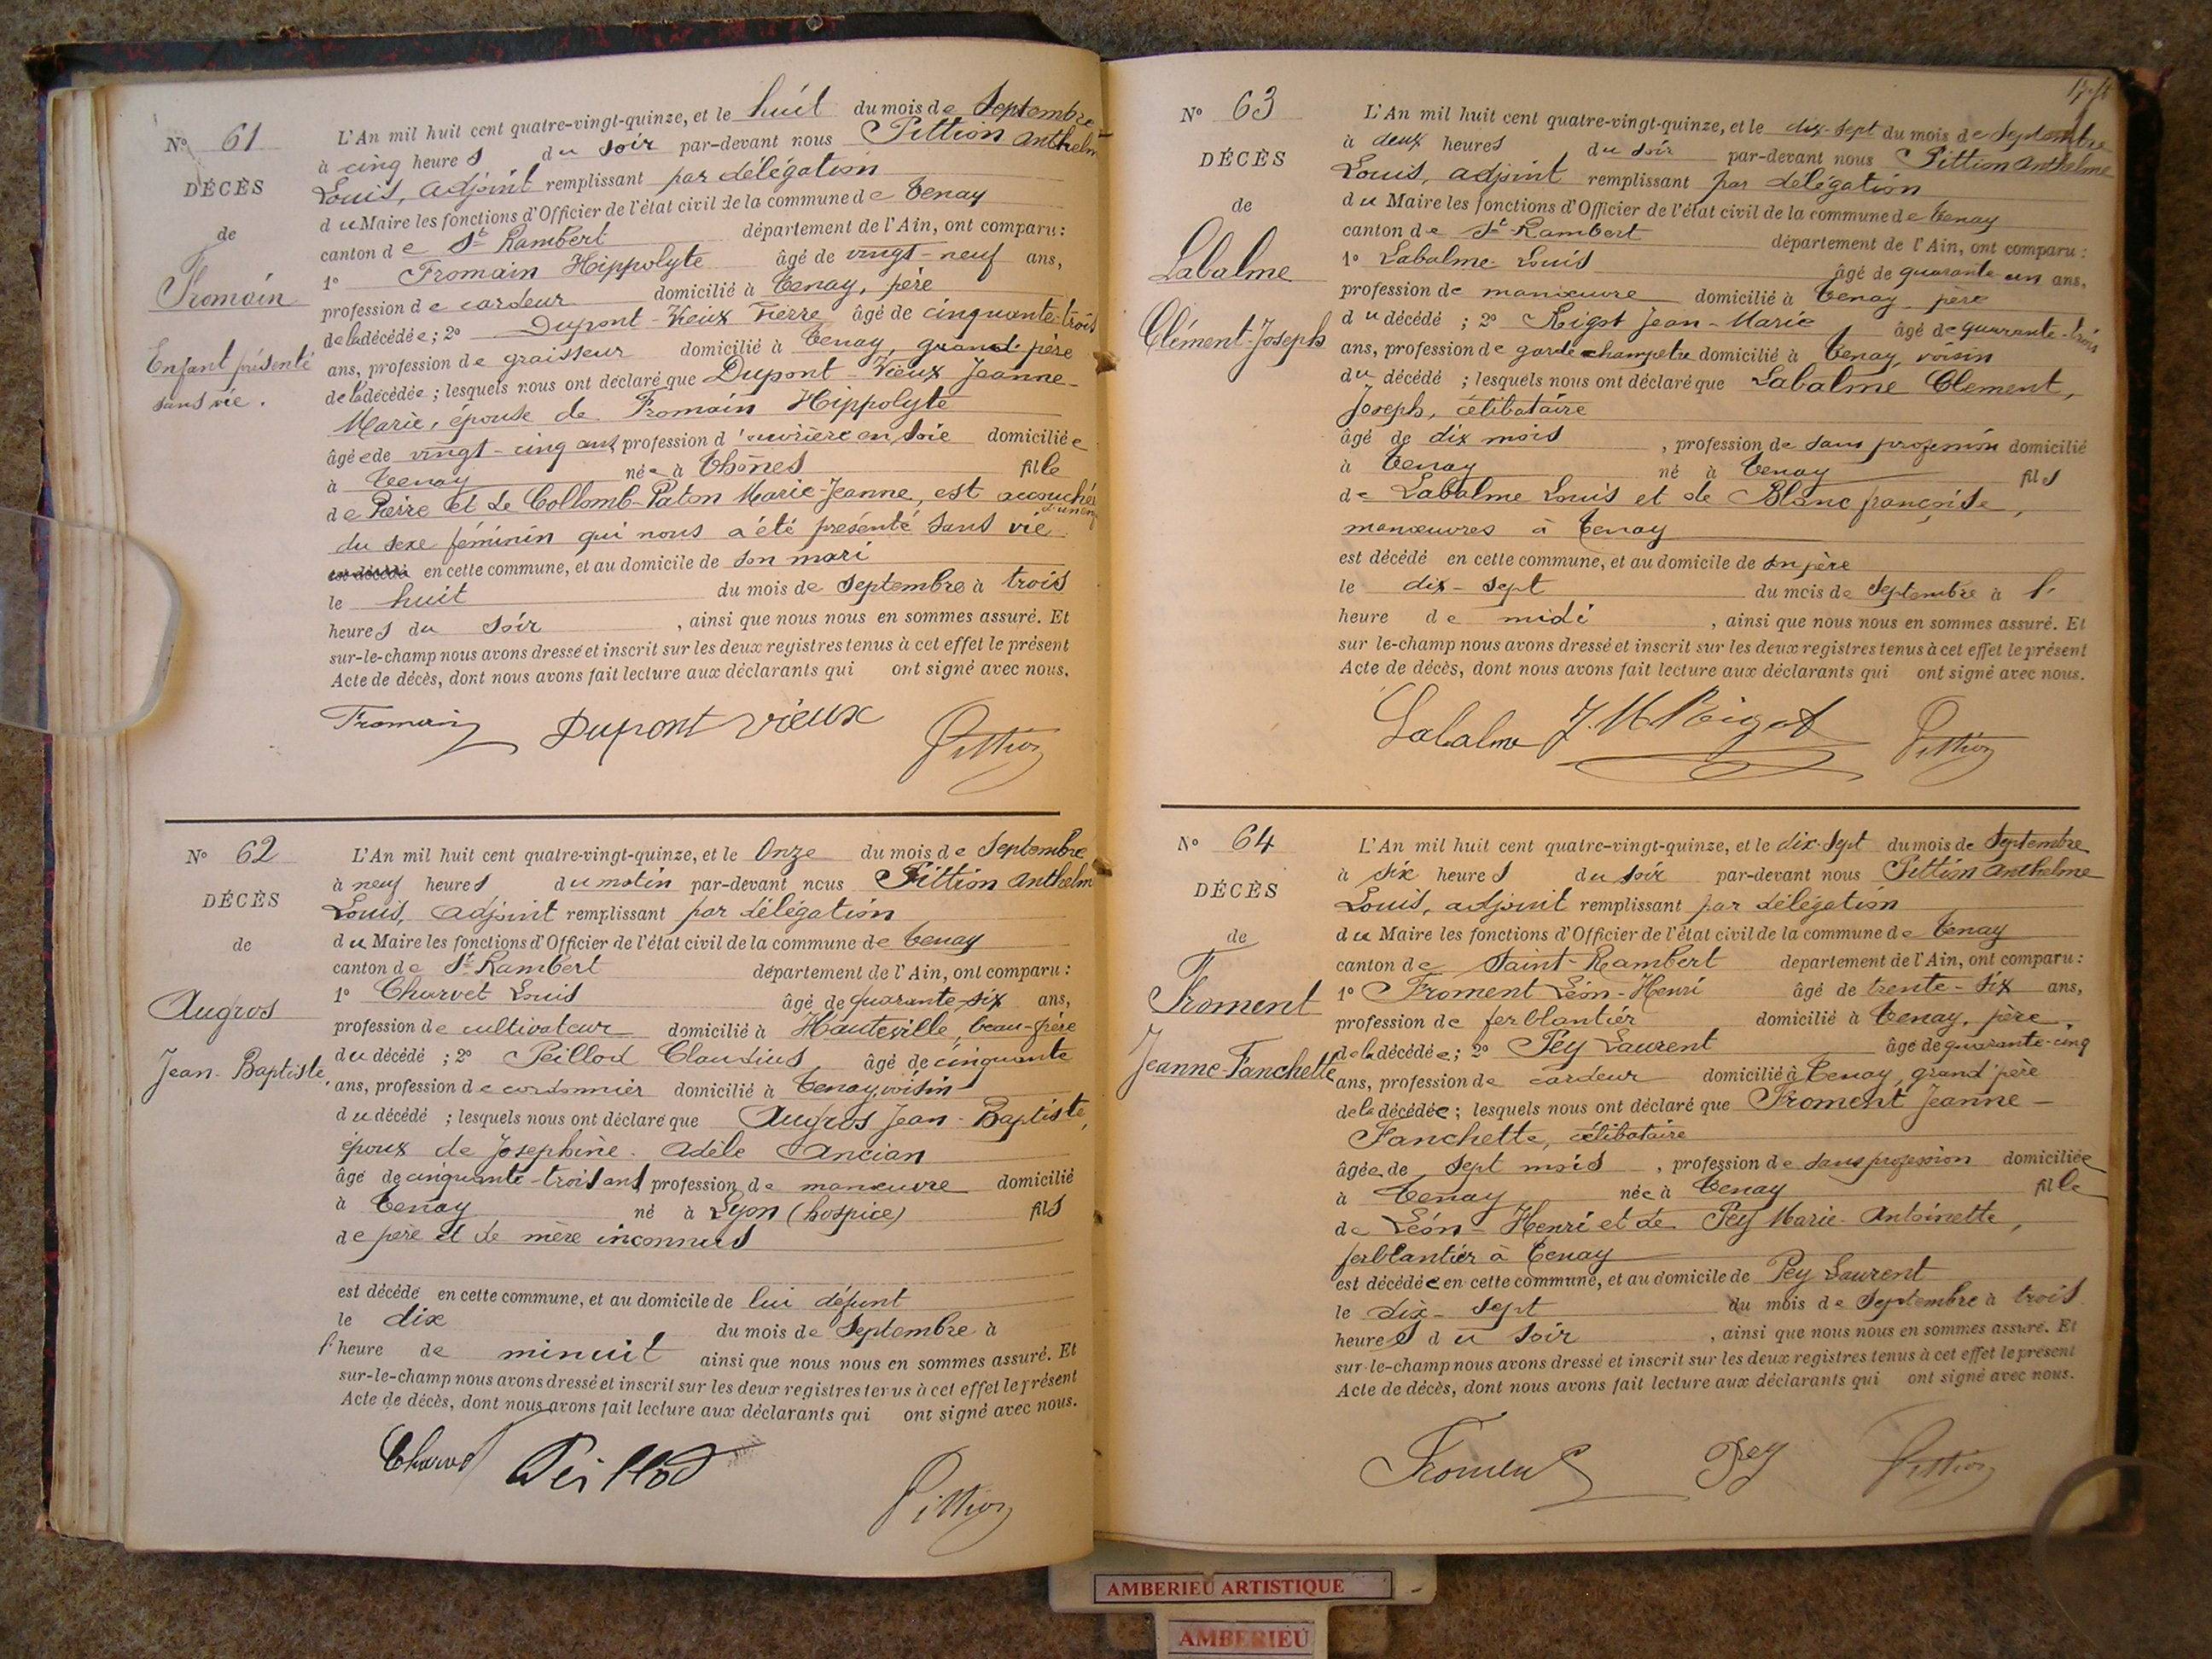 N° 61
DÉCÈS
de
Fromain
Enfant présenté
sans vie.
L'An mil huit cent quatre-vingt-quinze, et le huit du mois de Septembre
à cinq heures du soir par-devant nous Pittion Anthelm
Louis, adjoint remplissant par délégation
du Maire les fonctions d'Officier de l'état civil de la commune de Tenay
canton de St Rambert département de l'Ain, ont comparu :
1° Fromain Hippolyte âgé de vingt-neuf ans,
profession de cardeur domicilié à Tenay, père
de la décédée ; 2° Dupont-Vieux Pierre âgé de cinquante-trois
ans, profession de graisseur domicilié à Tenay, grand père
de la décédée ; lesquels nous ont déclaré que Dupont-Vieux Jeanne-
Marie, épouse de Fromain Hippolyte
âgée de vingt-cinq ans profession d'ouvrière en soie domiciliée
à Tenay née à Thônes fille
de Pierre et de Collomb-Paton Marie-Jeanne, est accouchée
d'un enf
du sexe féminin qui nous a été présenté sans vie
est décédé en cette commune, et au domicile de son mari
le huit du mois de Septembre à trois
heures du soir , ainsi que nous nous en sommes assuré. Et
sur-le-champ nous avons dressé et inscrit sur les deux registres tenus à cet effet le présent
Acte de décès, dont nous avons fait lecture aux déclarants qui ont signé avec nous.
Fromain Dupont vieux Pittion
N° 62
DÉCÈS
de
Augros
Jean-Baptiste,
L'An mil huit cent quatre-vingt-quinze, et le Onze du mois de Septembre
à neuf heures du matin par-devant nous Pittion Anthelm
Louis, adjoint remplissant par délégation
du Maire les fonctions d'Officier de l'état civil de la commune de Tenay
canton de St Rambert département de l'Ain, ont comparu :
1° Charvet Louis âgé de quarante-six ans,
profession de cultivateur domicilié à Hauteville, beau-frère
du décédé ; 2° Peillod Claudius âgé de cinquante
ans, profession de cordonnier domicilié à Tenay, voisin
du décédé ; lesquels nous ont déclaré que Augros Jean-Baptiste,
époux de Josephine-Adèle Ancian
âgé de cinquante-trois ans profession de manœuvre domicilié
à Tenay né à Lyon (hospice) fils
de père et de mère inconnus
est décédé en cette commune, et au domicile de lui défunt
le dix du mois de Septembre à
l'heure de minuit ainsi que nous nous en sommes assuré. Et
sur-le-champ nous avons dressé et inscrit sur les deux registres tenus à cet effet le présent
Acte de décès, dont nous avons fait lecture aux déclarants qui ont signé avec nous.
Charvet Peillod Pittion
N° 63
DÉCÈS
de
Labalme
Clément-Joseph
L'An mil huit cent quatre-vingt-quinze, et le dix-sept du mois de Septembre
à deux heures du soir par-devant nous Pittion Anthelme
Louis, adjoint remplissant par délégation
du Maire les fonctions d'Officier de l'état civil de la commune de Tenay
canton de St-Rambert département de l'Ain, ont comparu :
1° Labalme Louis âgé de quarante un ans,
profession de manœuvre domicilié à Tenay père
du décédé ; 2° Rigot Jean-Marie âgé de quarante-trois
ans, profession de garde champêtre domicilié à Tenay, voisin
du décédé ; lesquels nous ont déclaré que Labalme Clement,
Joseph, célibataire
âgé de dix mois , profession de sans profession domicilié
à Tenay né à Tenay fils
de Labalme Louis et de Blanc françoise,
manœuvres à Tenay
est décédé en cette commune, et au domicile de son père
le dix-sept du mois de Septembre à l'
heure de midi , ainsi que nous nous en sommes assuré. Et
sur le-champ nous avons dressé et inscrit sur les deux registres tenus à cet effet le présent
Acte de décès, dont nous avons fait lecture aux déclarants qui ont signé avec nous.
Labalme J. M Rigot Pittion
N° 64
DÉCÈS
de
Froment
Jeanne-Fanchette
L'An mil huit cent quatre-vingt-quinze, et le dix-sept du mois de Septembre
à six heures du soir par-devant nous Pittion Anthelme
Louis, adjoint remplissant par délégation
du Maire les fonctions d'Officier de l'état civil de la commune de Tenay
canton de Saint-Rambert département de l'Ain, ont comparu :
1° Froment Léon-Henri âgé de trente-six ans,
profession de ferblantier domicilié à Tenay, père,
de la décédée ; 2° Pey Laurent âgé de quarante-cinq
ans, profession de cardeur domicilié à Tenay, grand père
de la décédée ; lesquels nous ont déclaré que Froment Jeanne-
Fanchette, célibataire
âgée de sept mois , profession de sans profession domiciliée
à Tenay née à Tenay fille
de Léon-Henri et de Pey Marie-Antoinette,
ferblantier à Tenay
est décédée en cette commune, et au domicile de Pey Laurent
le dix-sept du mois de Septembre à trois
heures du soir , ainsi que nous nous en sommes assuré. Et
sur-le-champ nous avons dressé et inscrit sur les deux registres tenus à cet effet le présent
Acte de décès, dont nous avons fait lecture aux déclarants qui ont signé avec nous.
Froment Pey Pittion
AMBERIEU ARTISTIQUE
AMBERIEU